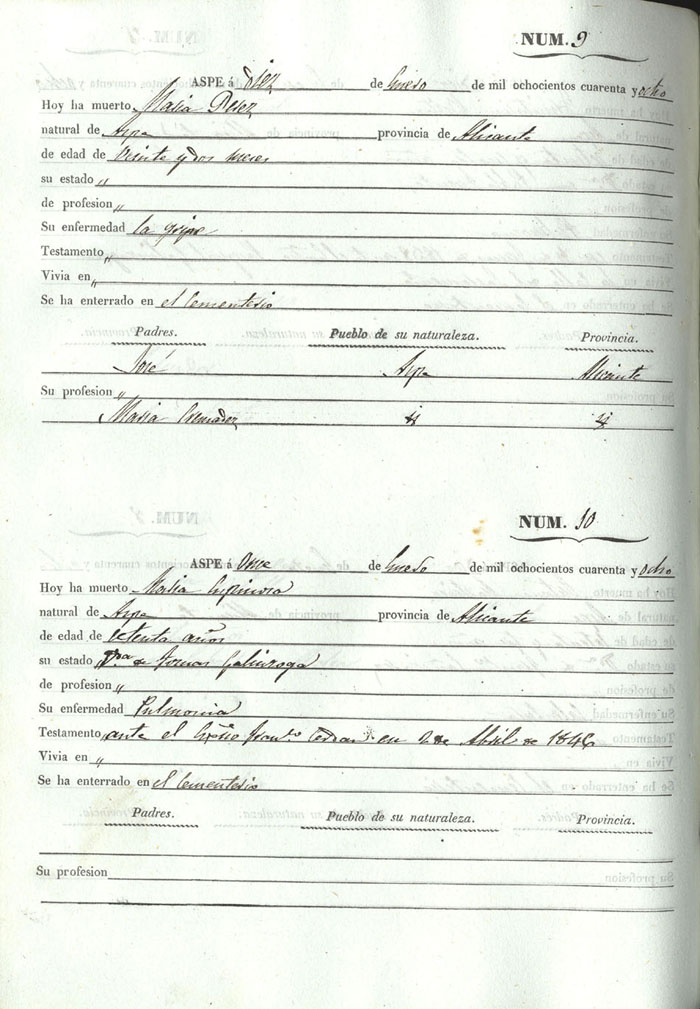 NUM. 9
ASPE á Diez de Enero de mil ochocientos cuarenta y ocho
Hoy ha muerto Maria Perez
natural de Aspe provincia de Alicante
de edad de veinte y dos meses
su estado "
de profesion "
Su enfermedad la gripe
Testamento "
Vivia en "
Se ha enterrado en el Cementerio
Padres. Pueblo de su naturaleza. Provincia.
José Aspe Alicante
Su profesion "
Maria Cremades
NUM. 10
ASPE á Once de Enero de mil ochocientos cuarenta y ocho
Hoy ha muerto Maria Espinosa
natural de Aspe provincia de Alicante
de edad de setenta años
su estado Vda de Tomas
de profesion "
Su enfermedad Pulmonia
Testamento ante el Franco. en 2 de Abril de 1846
Vivia en "
Se ha enterrado en el Cementerio
Padres. Pueblo de su naturaleza. Provincia.
Su profesion